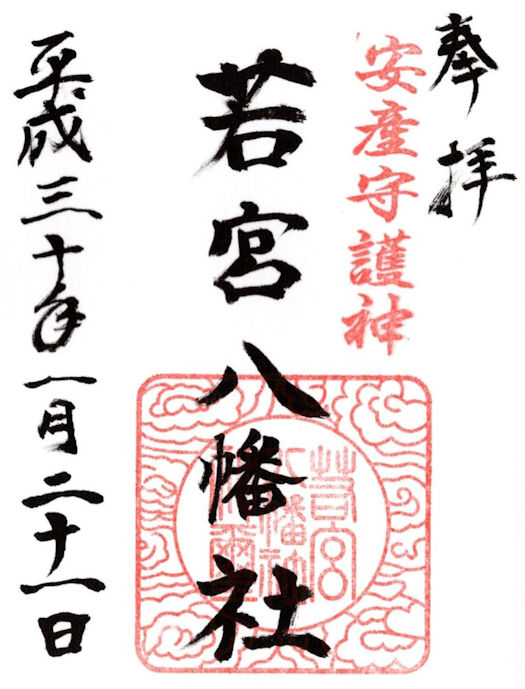 奉拝
安産守護神
若宮八幡社
平成三十年一月二十一日